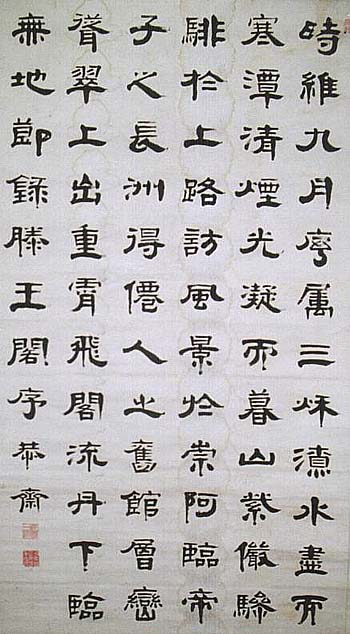 時維九月序属三秌潦水盡而
寒潭清煙光凝而暮山紫儼驂
騑於上路訪風景於崇阿臨帝
子之長洲得僊人之舊館層巒
聳翠上出重霄飛閣流丹下臨
無地節錄滕王閣序恭齋